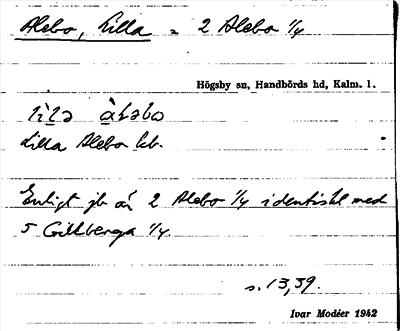 Alebo, Lilla = 2 Alebo 1/4
Högsby sn, Handbörds hd, Kalm. l.
Lilla Alebo
Enligt jb är 2 Alebo 1/4 identiskt med
5 Gillberga 1/4.
s. 13, 39.
Ivar Modéer 1942